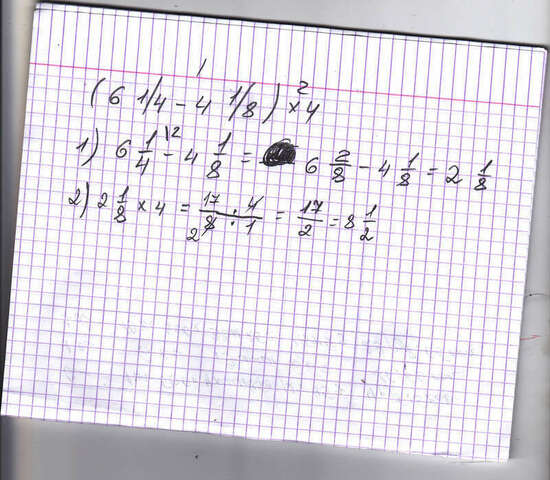 1 2
(6 1/4 - 4 1/8) × 4
1) 6 1/4 \2 - 4 1/8 = 6 2/8 - 4 1/8 = 2 1/8
2) 2 1/8 × 4 = 17 · 4 / 8 · 1 2 = 17/2 = 8 1/2